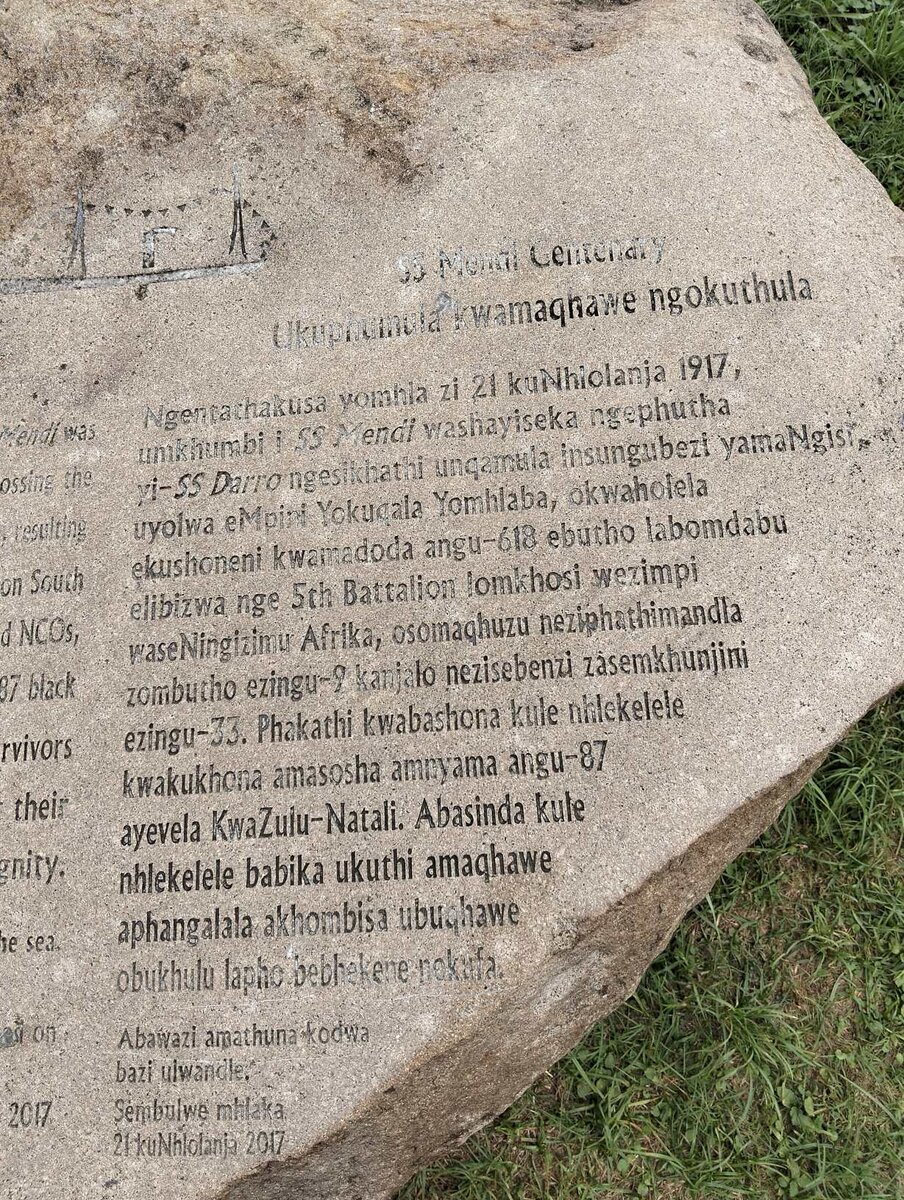 Mendi was
ossing the
resulting
on South
d NCOs,
87 black
rvivors
their
gnity.
he sea.
on
2017
SS Mendi Centenary
Ukuphumula kwamaqhawe ngokuthula
Ngentathakusa yomhla zi 21 kuNhlolanja 1917,
umkhumbi i SS Mendi washayiseka ngephutha
yi-SS Darro ngesikhathi unqamula insungubezi yamaNgisi,
uyolwa eMpini Yokuqala Yomhlaba, okwaholela
ekushoneni kwamadoda angu-618 ebutho labomdabu
elibizwa nge 5th Battalion lomkhosi wezimpi
waseNingizimu Afrika, osomaqhuzu neziphathimandla
zombutho ezingu-9 kanjalo nezisebenzi zasemkhunjini
ezingu-33. Phakathi kwabashona kule nhlekelele
kwakukhona amasosha amnyama angu-87
ayevela KwaZulu-Natali. Abasinda kule
nhlekelele babika ukuthi amaqhawe
aphangalala akhombisa ubuqhawe
obukhulu lapho bebhekene nokufa.
Abawazi amathuna kodwa
bazi ulwandle.
Sembulwe mhlaka
21 kuNhlolanja 2017